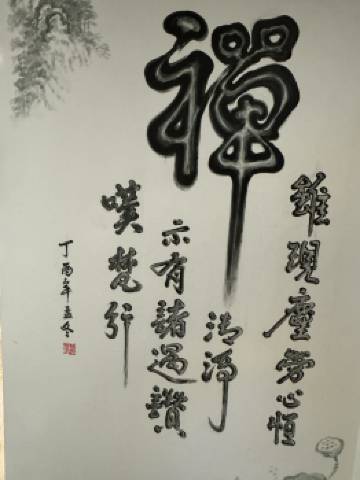 禪
雖現塵勞心恒
清淨
示有諸過讚
嘆梵行
丁酉年立冬